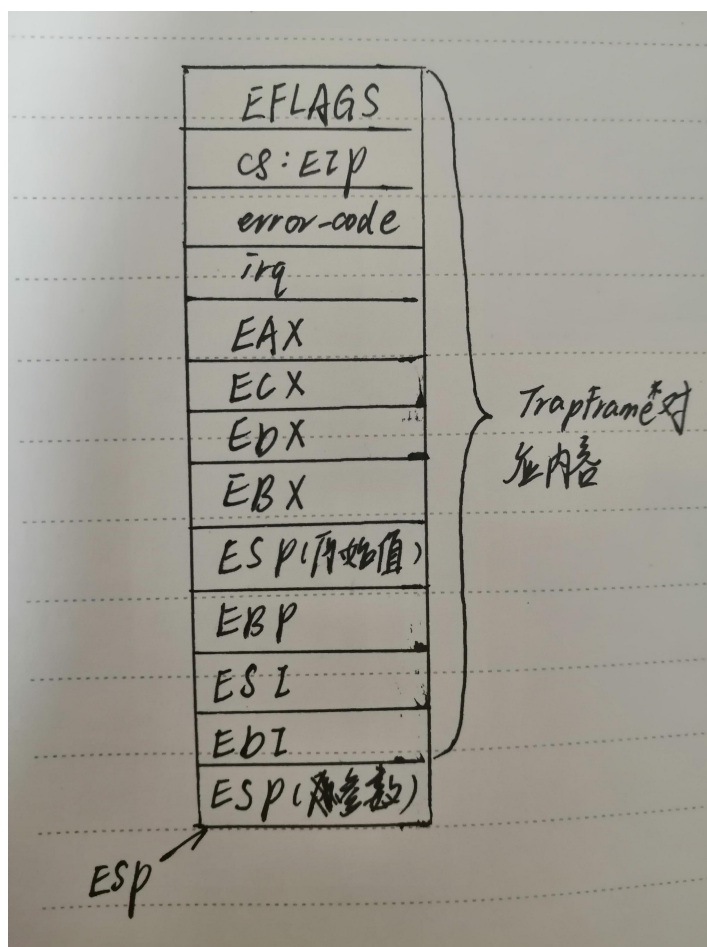 EFLAGS
CS:EIP
error-code
irq
EAX
ECX
EDX
EBX
ESP(原始值)
EBP
ESI
EDI
ESP(参数)
ESP
TrapFrame*对
应内容